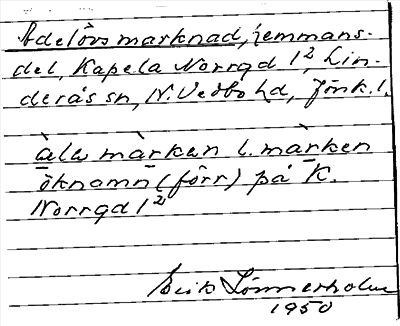 Adelövs marknad, hemmans-
del, Kapela Norrgd 1², Lin-
derås sn, N. Vedbo hd, Jönk. l.
màrkan l. màrken
öknamn (förr) på K.
Norrgd 1²
Erik Lönnerholm
1950